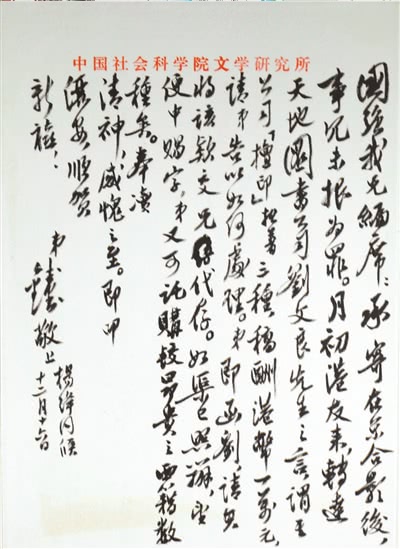 中国社会科学院文学研究所
國強我兄席:承寄在京合影後,
事冗未報为罪。月初港友来,轉達
天地圖書公司劉文良先生之言,謂
公司「擅印」拙著三種,稿酬港幣一萬元,
請弟告以如何處理。弟即函劉,請其
將該款交兄代存。如渠已照辦,望
便中賜字,弟又可託購較昂貴之西籍數
種矣。奉凟
清神,感愧之至。即叩
潭安,順賀
新禧!
弟鍾書敬上
楊絳同候
十二月十六日